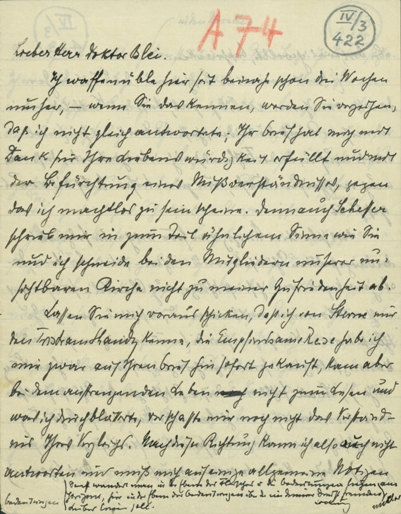 A 74
IV/3
422
Lieber Herr Doktor Blei.
Ich waffenüble hier seit beinah schon drei Wochen
umher, – wenn Sie das kennen, werden Sie verzeihen,
daß ich nicht gleich antwortete; Ihr Brief hat mich mit
Dank für Ihre Liebenswürdigkeit erfüllt und mit
der Befürchtung eines Mißverständnisses, gegen
das ich machtlos zu sein scheine. Denn auch
schrieb mir in zum Teil ähnlichem Sinne wie Sie
und ich schneide bei den Mitgliedern unserer un-
sichtbaren Kirche nicht zu meiner Zufriedenheit ab.
Lassen Sie mich vorausschicken, daß ich von Sterne nur
den Tristram Shandy kenne, die Empfindsame Reise habe ich
mir zwar auf Ihren Brief hin sofort gekauft, kam aber
bei dem anstrengenden Leben nicht zum Lesen und
was ich durchblätterte, verschaffte mir noch nicht das Verständ-
nis Ihres Vergleichs. Nach dieser Richtung kann ich also auch nicht
antworten und muß mich auf einige allgemeine Notizen